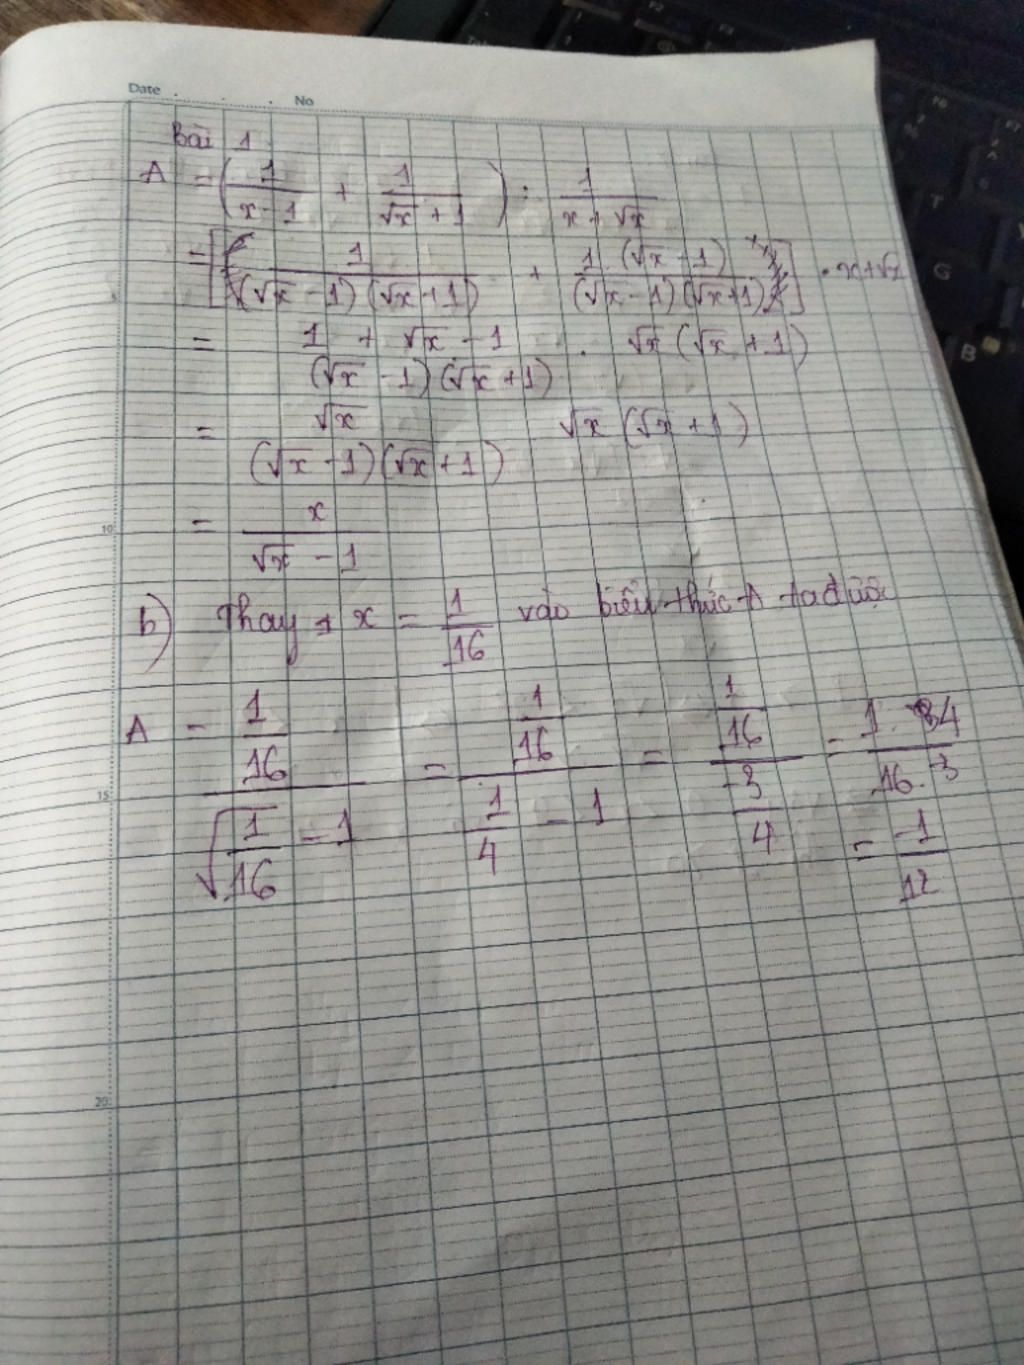 Date . . . No
Bài 1
A = ( 1/(x - 1) + 1/(√x + 1) ) : 1/(x + √x)
= [ 1/((√x - 1)(√x + 1)) + 1.(√x - 1)/((√x - 1)(√x + 1)) ] . x + √x
= (1 + √x - 1)/((√x - 1)(√x + 1)) . √x (√x + 1)
= √x/((√x - 1)(√x + 1)) √x (√x + 1)
10
= x/(√x - 1)
b) Thay x = 1/16 vào biểu thức A ta được
A = (1/16)/(√(1/16) - 1) = (1/16)/(1/4 - 1) = (1/16)/(-3/4) = (1. 4)/(16. 3)
15
= -1/12
20